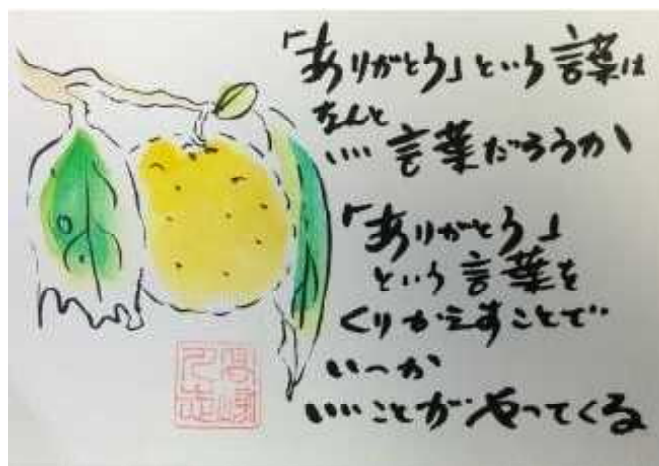 「ありがとう」という言葉は
なんと
いい言葉だろうか
「ありがとう」
という言葉を
くりかえすことで
いつか
いいことがやってくる